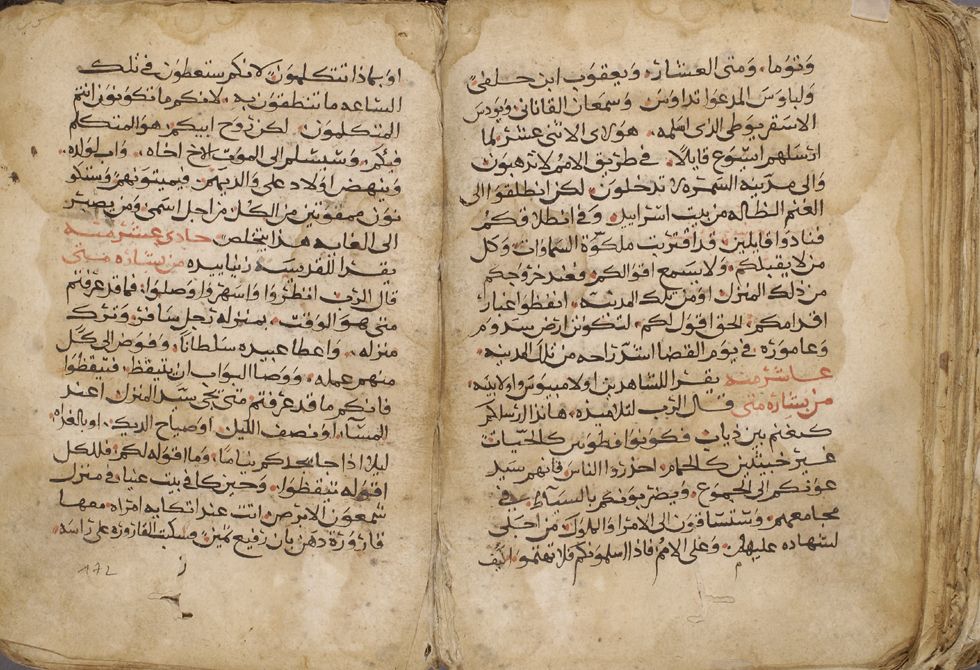 وتوما، ومتى العشار، ويعقوب ابن حلفى
ولباوس المدعوا تداوس وسمعان القاناني ويودس
الاسقريوطى الدى اسلمه، هولاى الاتنى عشر لما
ارسلهم ايسوع قايلا، في طريق الامم لا تدهبون
والى مدينه السمره لا تدخلون، لكن انطلقوا الى
الغنم الظاله من بيت اسراييل، وفي انطلاقكم
فنادوا قايلين، قد اقتربت ملكوة السماوات، وكل
من لا يقبلكم، ولا يسمع اقوالكم، فعند خروجكم
من دلك المنزل، او من تلك المدينه، انفظوا غبار
اقدامكم، الحق اقول لكم، لتكونن ارض سدوم
وعاموره، في يوم القضا استر راحه من تلك المدينه،
عاشر منه يقرا للشاهدين اولامبيوس واولابيه،
من بشارة متى قال الرب لتلاميده، هاندا ارسلكم
كغنم بين دياب، فكونوا فطوبين كالحيات
غير خبيثين كالحمام، احدروا الناس فانهم سيد
عونكم الى الجموع، ويضربونكم بالسياط، في
مجامعهم، وستساقون الى الامرا والملوك من اجلى
لشهاده عليهم، وعلى الامم فادا اسلمونكم فلا تهتموا كيف
او بمادا تتكلمون، لانكم ستعطون في تلك
الساعه ما تنطقون به، لانكم ما تكونون انتم
المتكلمون، لكن روح ابيكم هو المتكلم
فيكم، وسيسلم الى الموت الاخ اخاه، واب لولده،
وتنهض اولاد على والديهم، فيميتونهم وستكو
نون ممقوتين من الكل من اجل اسمى ومن يصبر
الى الغايه هدا يتخلص حادى عشر منه
يقرا للقديسه من بشارة متى
قال الرب انظروا واسهروا وصلوا، فما قد عرفتم
متى هو الوقت، بمنزله رجل سافر وترك
منزله، واعطا عبيده سلطانا، وفوض الى كل
منهم عمله، ووصا البواب ان يتيقظ، فتيقظوا
فانكم ما قد عرفتم متى يجى سيد المنزل، اعند
المسا، او نصف الليل، او صياح الديك، او بالغداه
ليلا ادا جا يجدكم نياما، وما اقوله لكم فللكل
اقوله تيقظوا، وحين كان في بيت عنيا، في منزل
سمعون الابرص، اتت عند اتكايه امراه معها
قاروره دهن بان رفيع ثمين، وسكبت القاروره على راسه،
١٧٢